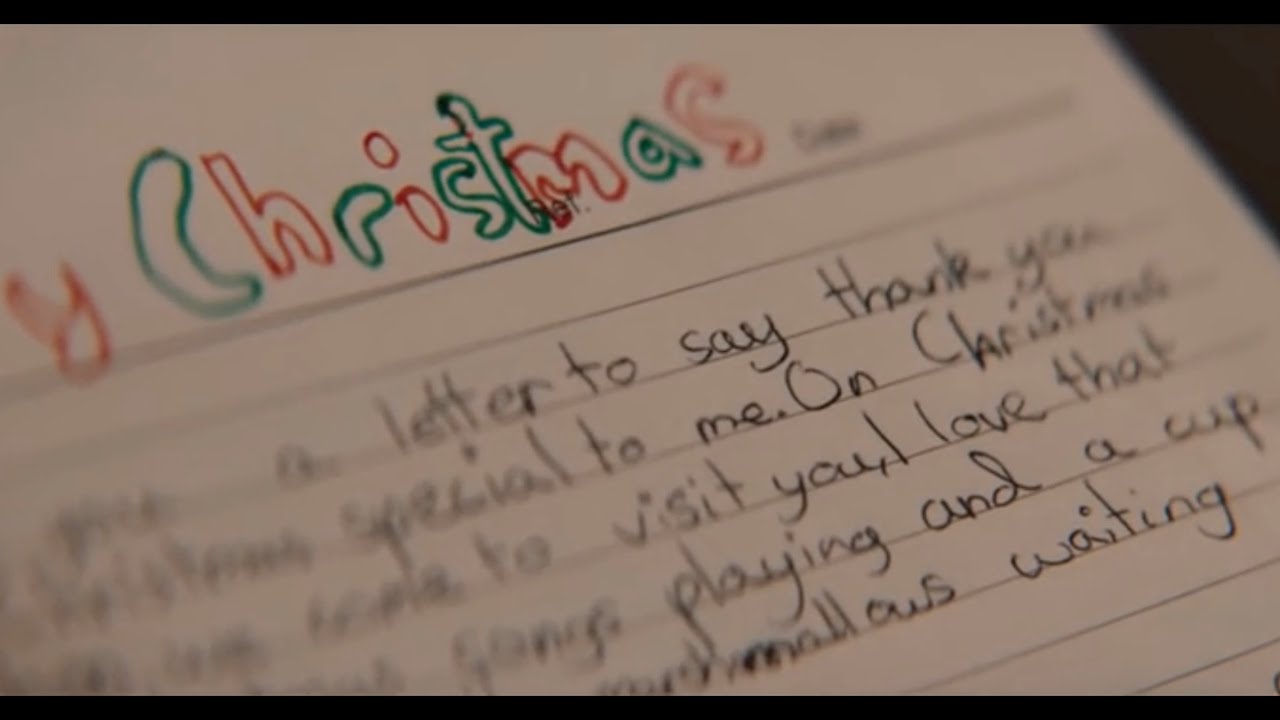 y Christmas
a letter to say thank you
Christmas special to me. On Christmas
we come to visit you, I love that
songs playing and a cup
marshmallows waiting